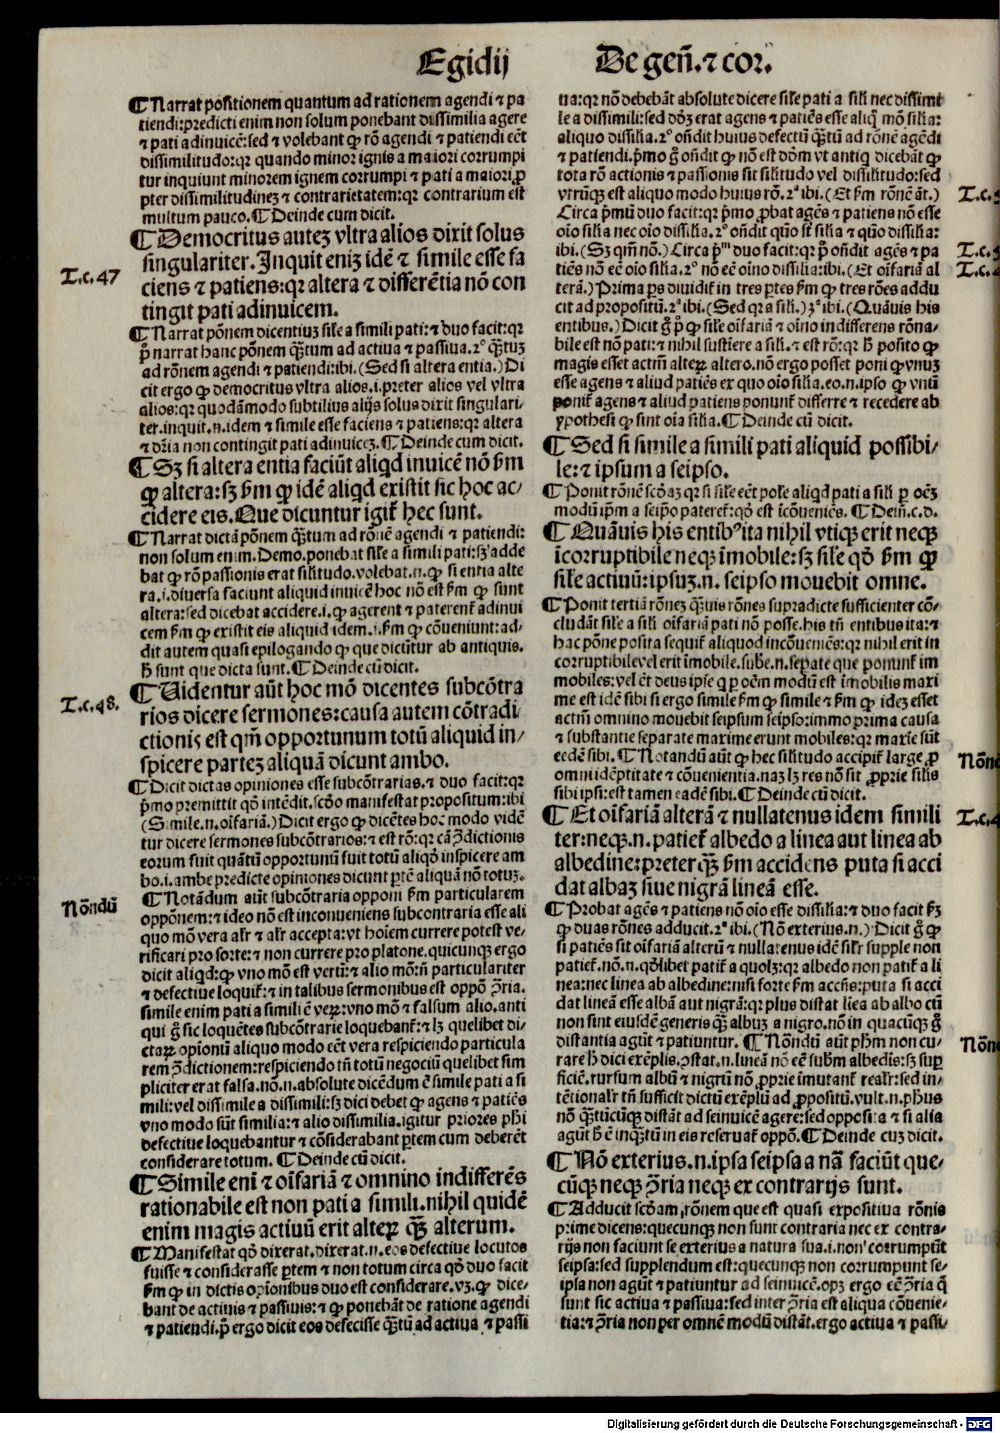 Egidij
De geñ. ⁊ cor.
¶ Narrat positionem quantum ad rationem agendi ⁊ pa
tiendi: predicti enim non solum ponebant dissimilia agere
⁊ pati adinuicē: sed ⁊ volebant ꝙ rō agendi ⁊ patiendi eēt
dissimilitudo: qꝛ quando minor ignis a maiori corrumpi
tur inquiunt minorem ignem corrumpi ⁊ pati a maiori ꝓ
pter dissimilitudinez ⁊ contrarietatem: qꝛ contrarium est
multum pauco. ¶ Deinde cum dicit.
¶ Democritus autez vltra alios dixit solus
singulariter. Inquit eniz idē ⁊ simile esse fa
ciens ⁊ patiens: qꝛ altera ⁊ differētia nō con
tingit pati adinuicem.
T.c.47
¶ Narrat pōnem dicentiuz sile a simili pati: ⁊ duo facit: qꝛ
p̄ narrat hanc pōnem qȝtum ad actiua ⁊ passiua. 2º qȝtuz
ad rōnem agendi ⁊ patiendi: ibi. (Sed si altera entia.) Di
cit ergo ꝙ democritus vltra alios .i. preter alios vel vltra
alios: qꝛ quodāmodo subtilius alijs solus dixit singulari/
ter. inquit .n. idem ⁊ simile esse faciens ⁊ patiens: qꝛ altera
⁊ dr̄ia non contingit pati adinuicez. ¶ Deinde cum dicit.
¶ Sȝ si altera entia faciūt aliqd inuicē nō ẜm
ꝙ altera: sȝ ẜm ꝙ idē aliqd existit sic hoc ac/
cidere eis. Que dicuntur igit̄ hec sunt.
¶ Narrat dictā pōnem qȝtum ad rōnē agendi ⁊ patiendi:
non solum enim. Demo. ponebat sile a simili pati: sȝ adde
bat ꝙ rō passionis erat silitudo. volebat .n. ꝙ si entia alte
ra .i. diuersa faciunt aliquid inuicē hoc nō est ẜm ꝙ sunt
altera: sed dicebat accidere .i. ꝙ agerent ⁊ paterent̄ adinui
cem ẜm ꝙ existit eis aliquid idem .i. ẜm ꝙ cōueniunt: ad/
dit autem quasi epilogando ꝙ que dicūtur ab antiquis.
ħ sunt que dicta sunt. ¶ Deinde cū dicit.
¶ Uidentur aūt hoc mō dicentes subcōtra
rios dicere sermones: causa autem cōtradi
ctionis est qm̄ opportunum totū aliquid in/
spicere partez aliquā dicunt ambo.
T.c.48.
¶ Dicit dictas opiniones esse subcōtrarias. ⁊ duo facit: qꝛ
p̄mo premittit qō intēdit. scđo manifestat propositum: ibi
(Simile .n. oīfariā.) Dicit ergo ꝙ dicētes hoc modo vidē
tur dicere sermones subcōtrarios: ⁊ est rō: qꝛ cā ꝯ̄dictionis
eorum fuit quātū opportunū fuit totū aliqō inspicere am
bo .i. ambe predicte opiniones dicunt ptē aliquā nō totuz.
¶ Notādum aūt subcōtraria opponi ẜm particularem
oppōnem: ⁊ ideo nō est inconueniens subcontraria esse ali
quo mō vera alr̄ ⁊ alr̄ accepta: vt hoīem currere potest ve/
rificari pro sorte: ⁊ non currere pro platone. quicunqȝ ergo
dicit aliqd: ꝙ vno mō est verū: ⁊ alio mō: n̄ particulariter
⁊ defectiue loquit̄: ⁊ in talibus sermonibus est oppō ꝯ̄ria.
simile enim pati a simili ē veꝝ: vno mō ⁊ falsum alio. anti
qui ḡ sic loquētes subcōtrarie loquebant̄: ⁊ lȝ quelibet di/
ctaꝝ opionū aliquo modo eēt vera respiciendo particula
rem ꝯ̄dictionem: respiciendo tn̄ totū negociū quelibet sim
pliciter erat falsa. nō .n. absolute dicēdum ē simile pati a si
mili: vel dissimile a dissimili: sȝ dici debet ꝙ agens ⁊ patiēs
vno modo sūt similia: ⁊ alio dissimilia. igitur priores phi
defectiue loquebantur ⁊ cōsiderabant ptem cum deberēt
considerare totum. ¶ Deinde cū dicit.
Nōndū
¶ Simile eni ⁊ oīfariā ⁊ omnino indifferēs
rationabile est non pati a simili. nihil quidē
enim magis actiuū erit alteꝝ qȝ alterum.
¶ Manifestat qō dixerat. dixerat .n. eos defectiue locutos
fuisse ⁊ considerasse ptem ⁊ non totum circa qō duo facit
ẜm ꝙ in dictis opionibus duo est considerare. vȝ. ꝙ dice/
bant de actiuis ⁊ passiuis: ⁊ ꝙ ponebāt de ratione agendi
⁊ patiendi. p̄ ergo dicit eos defecisse qȝtū ad actiua ⁊ passi
ua: qꝛ nō debebāt absolute dicere sile pati a sili nec dissimi
le a dissimili: sed dōȝ erat agens ⁊ patiēs esse aliq̄ mō silia:
aliquo dissilia. 2º oñdit huius defectū qȝtū ad rōnē agēdi
⁊ patiendi. p̄mo ḡ oñdit ꝙ nō est dōm vt antiq̄ dicebāt ꝙ
tota rō actionis ⁊ passionis sit silitudo vel dissilitudo: sed
vtrūqȝ est aliquo modo huius rō. 2ª ibi. (Et ẜm rōnē āt.)
Circa p̄mū duo facit: qꝛ p̄mo ꝓbat agēs ⁊ patiens nō esse
oīo silia nec oīo dissilia. 2º oñdit quō st̄ silia ⁊ quō dissilia:
ibi. (Sȝ qm̄ nō.) Circa p̄ᵐ duo facit: qꝛ p̄ oñdit agēs ⁊ pa
tiēs nō eē oīo silia. 2º nō eē oīno dissilia: ibi. (Et oīfariā al
terā.) Prima ps diuidit̄ in tres ptes ẜm ꝙ tres rōes addu
cit ad propositū. 2ª ibi. (Sed qꝛ a sili.) 3ª ibi. (Quāuis his
entibus.) Dicit ḡ p̄ ꝙ sile oīfariā ⁊ oīno indifferens rōna/
bile est nō pati: ⁊ nihil sustīere a sili. ⁊ est rō: qꝛ ħ posito ꝙ
magis esset actm̄ alteꝝ altero. nō ergo posset poni ꝙ vnuȝ
esse agens ⁊ aliud patiēs ex quo oīo silia. eo .n. ipso ꝙ vnū
ponit̄ agens ⁊ aliud patiens ponunt̄ differre ⁊ recedere ab
ypothesi ꝙ sint oīa silia. ¶ Deinde cū dicit.
¶ Sed si simile a simili pati aliquid possibi/
le: ⁊ ipsum a seipso.
¶ Ponit rōnē scđaȝ qꝛ si sile eēt pole aliqd pati a sili p oēȝ
modū ipm̄ a seipo pateret̄: qō est icōueniēs. ¶ Dein̄. c. d.
¶ Quāuis his entibꝰ ita nihil vtiqȝ erit neqȝ
īcorruptibile neqȝ īmobile: sȝ sile qō ẜm ꝙ
sile actiuū: ipsuȝ .n. seipso mouebit omne.
¶ Ponit tertiā rōnez qȝuis rōnes supradicte sufficienter cō/
cludāt sile a sili oīfariā pati nō posse. his tn̄ entibus ita: ⁊
hac pōne posita sequit̄ aliquod incōueniēs: qꝛ nihil erit in
corruptibile vel erit īmobile. sube .n. sepate que ponunt̄ im
mobiles: vel ēt deus ipse q̄ p oēm modū est īmobilis maxi
me est idē sibi si ergo simile ẜm ꝙ simile ⁊ ẜm ꝙ idez esset
actm̄ omnino mouebit seipsum seipso: immo prima causa
⁊ substantie separate maxime erunt mobiles: qꝛ maxīe sūt
eedē sibi. ¶ Notandū aūt ꝙ hec silitudo accipit̄ large ꝓ
omni idēptitate ⁊ cōuenientia. naȝ lȝ res nō sit ꝓprie silis
sibi ipsi: est tamen eadē sibi. ¶ Deinde cū dicit.
Nōn
¶ Et oīfariā alterā ⁊ nullatenus idem simili
ter: neqȝ .n. patiet̄ albedo a linea aut linea ab
albedine: preterqȝ ẜm accidens puta si acci
dat albaȝ siue nigrā lineā esse.
¶ Probat agēs ⁊ patiens nō oīo esse dissilia: ⁊ duo facit ẜȝ
ꝙ duas rōnes adducit. 2ª ibi. (Nō exterius .n.) Dicit ḡ ꝙ
si patiēs sit oīfariā alterū ⁊ nullatenus idē silr̄ supple non
patiet̄. nō .n. qōlibet patit̄ a quolȝ: qꝛ albedo non patit̄ a li
nea: nec linea ab albedine: nisi forte ẜm accñs: puta si acci
dat lineā esse albā aut nigrā: qꝛ plus distat līea ab albo cū
non sint eiusdē generis qȝ albuȝ a nigro. nō in quacūqȝ ḡ
distantia agūt ⁊ patiuntur. ¶ Nōndū aūt phm non cu/
rare ħ dici exēplis. ꝯstat .n. lineā nō eē subm̄ albedīs: sȝ suꝑ
ficiē. rursum albū ⁊ nigrū nō ꝓprie īmutant̄ realr̄: sed in/
tētionalr̄ tn̄ sufficit dictū exēplū ad ꝓpositū. vult .n. phus
nō qȝtūcūqȝ distāt ad seinuicē agere: sed opposita ⁊ si alia
agūt ħ ē inqȝtū in eis reseruat̄ oppō. ¶ Deinde cuȝ dicit.
Nōn
¶ Nō exterius .n. ipsa seipsa a nā faciūt que/
cūqȝ neqȝ ꝯ̄ria neqȝ ex contrarijs sunt.
¶ Adducit scđam rōnem que est quasi expositiua rōnis
prime dicens: quecunqȝ non sunt contraria nec ex contra/
rijs non faciunt se exterius a natura sua .i. non corrumpūt
seipsa: sed supplendum est: quecunqȝ non corrumpunt se/
ipsa non agūt ⁊ patiuntur ad seinuicē. opȝ ergo eē ꝯ̄ria q̄
sunt sic actiua ⁊ passiua: sed inter ꝯ̄ria est aliqua cōuenie/
tia: ⁊ ꝯ̄ria non per omnē modū distāt. ergo actiua ⁊ passi/
Digitalisierung gefördert durch die Deutsche Forschungsgemeinschaft - DFG